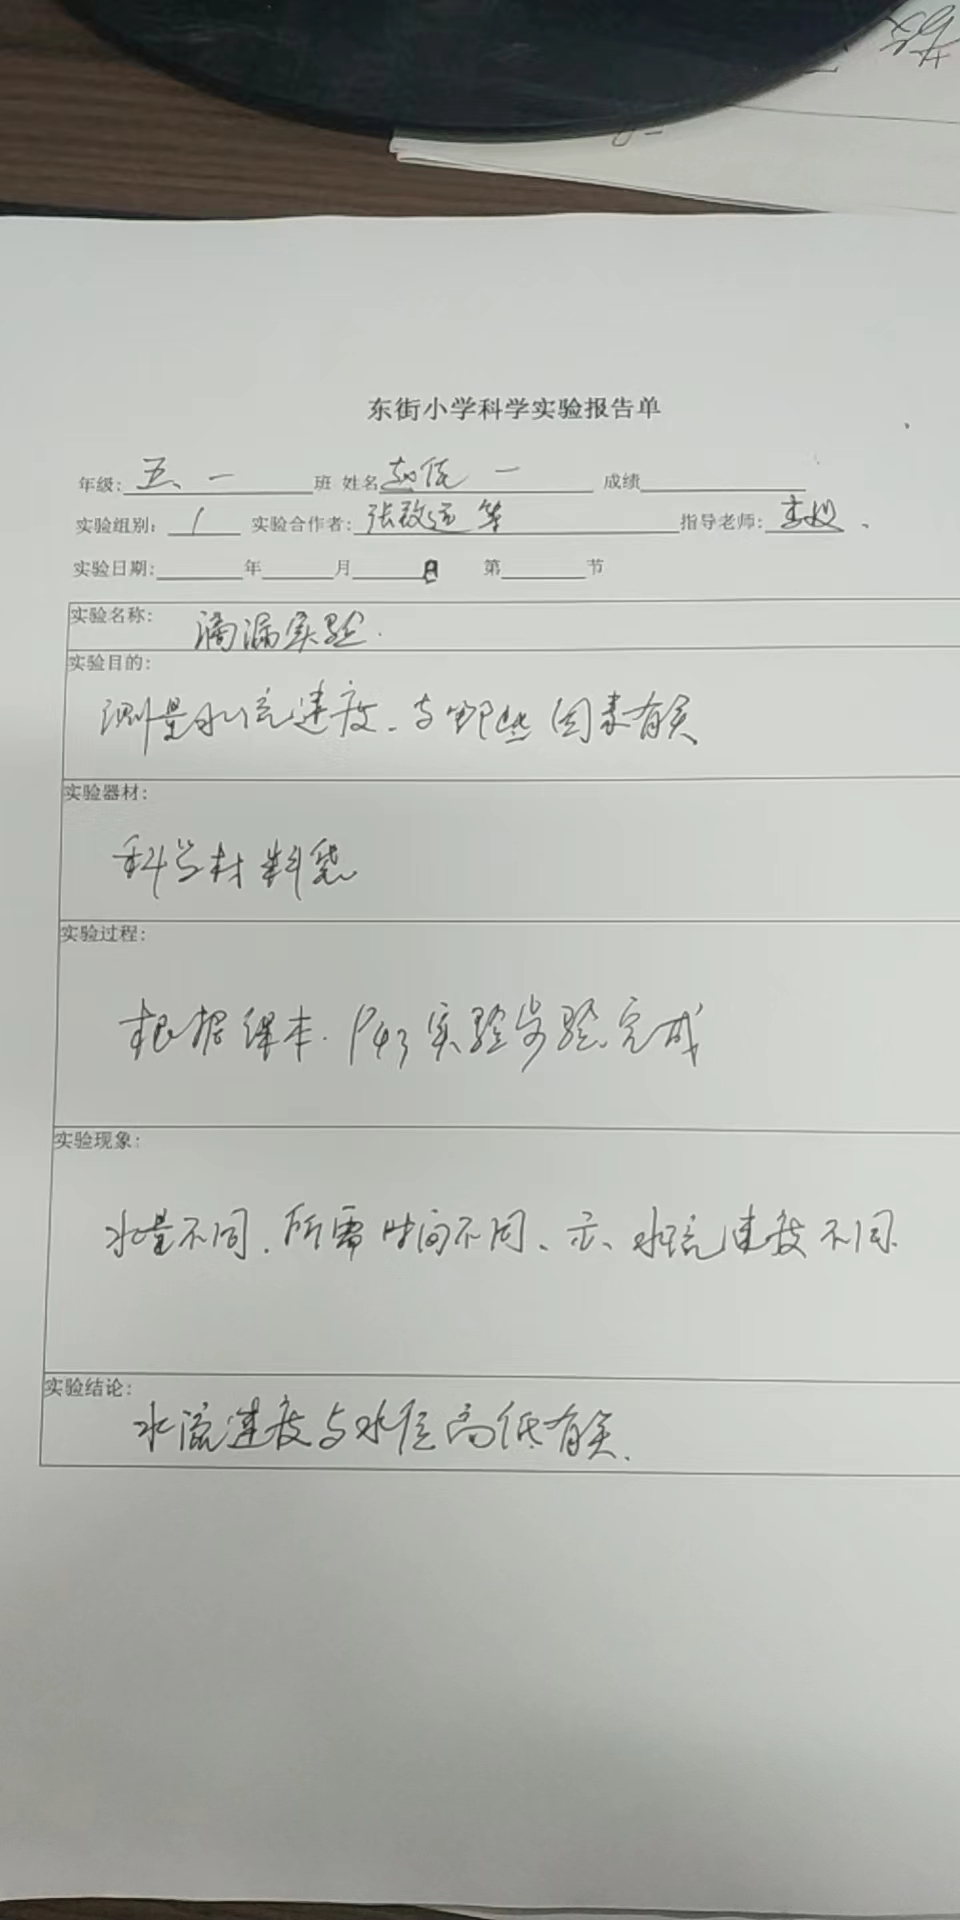 东街小学科学实验报告单
年级: 五、一 班 姓名 一 成绩
实验组别: 1 实验合作者: 张致远 等 指导老师: 李
实验日期: 年 月 日 第 节
实验名称: 滴漏实验.
实验目的:
测量水流速度、与哪些因素有关
实验器材:
科学材料袋
实验过程:
根据课本. P43 实验步验完成
实验现象:
水量不同、所需时间不同、示、水流速度不同.
实验结论:
水流速度与水位高低有关.